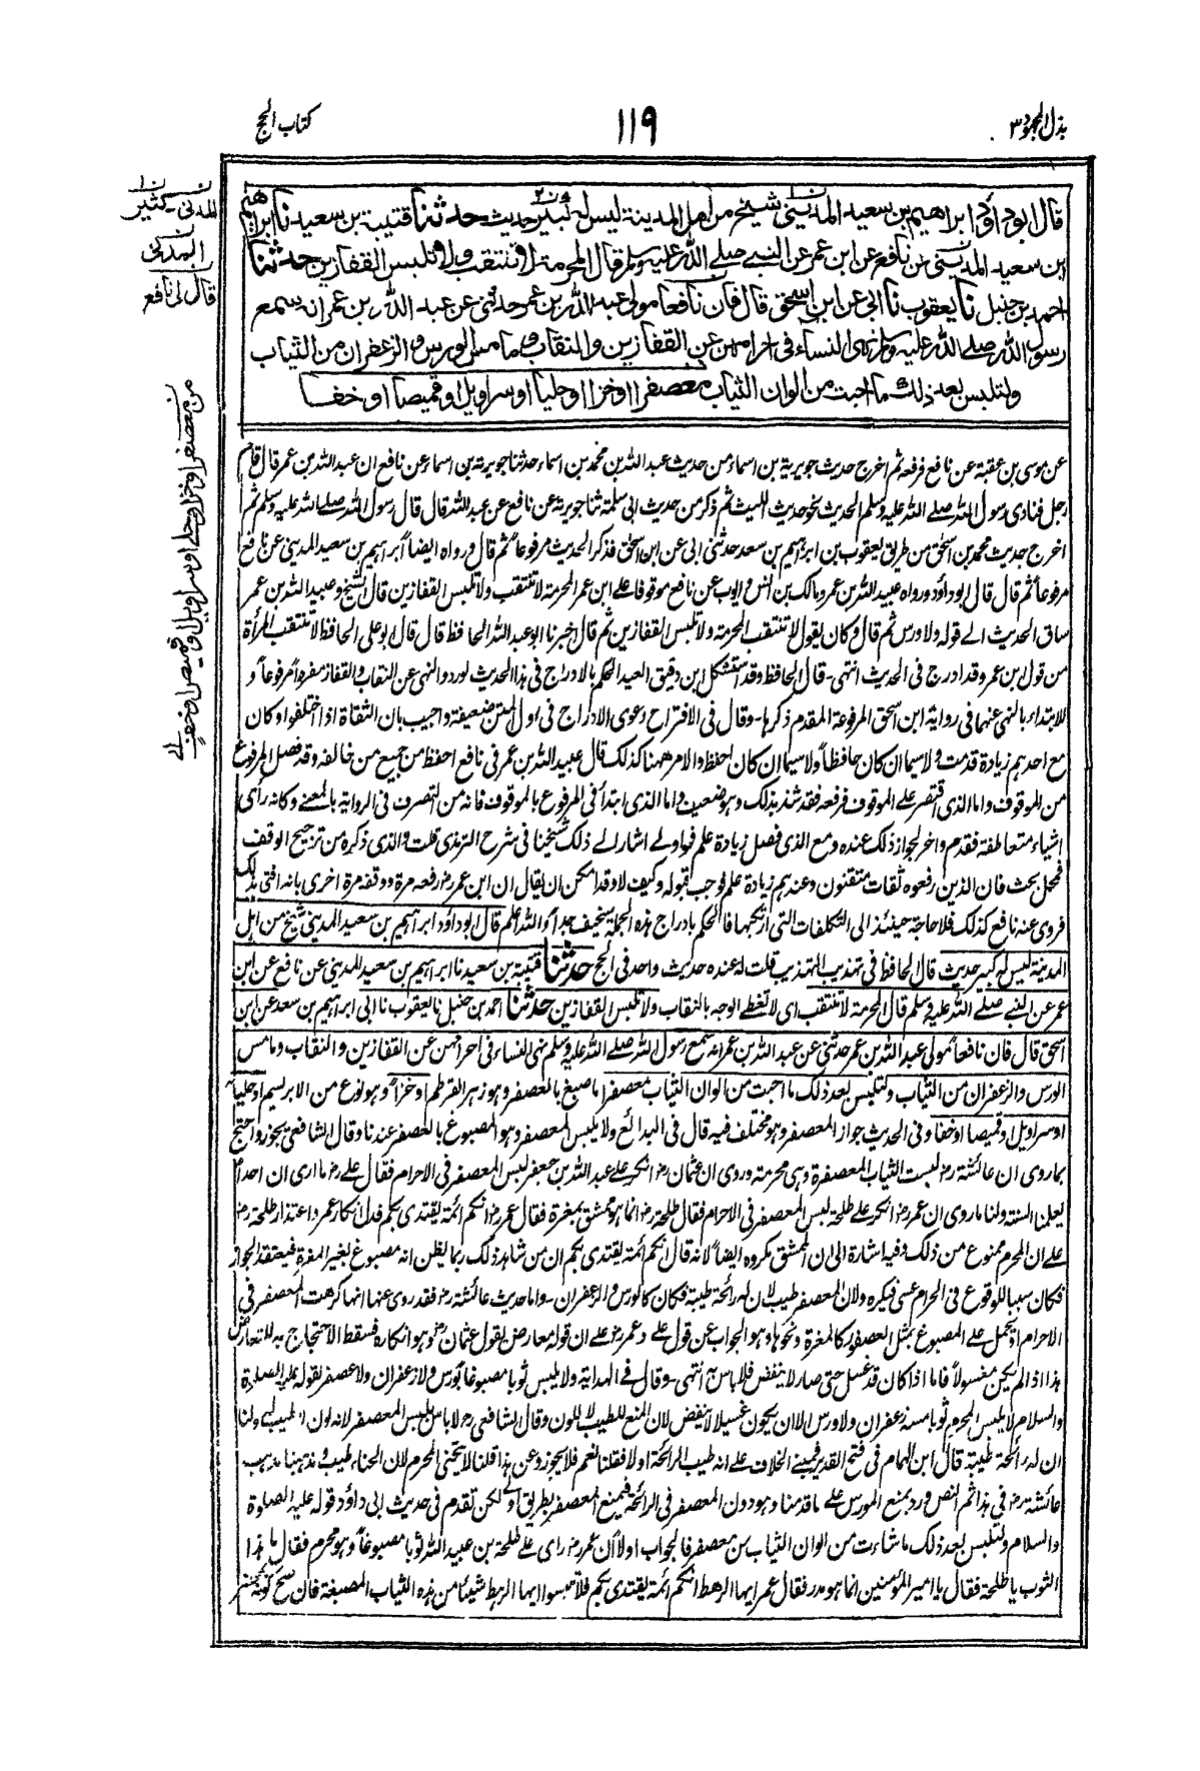 بذل المجهود ٣
١١٩
كتاب الحج
قال ابوداؤد ابراهيم بن سعيد المديني شيخ من اهل المدينة ليس له كبير حديث حدثنا قتيبة بن سعيد نا ابراهيم
ابن سعيد المديني عن نافع عن ابن عمر عن النبي صلى الله عليه وسلم قال المحرمة لا تنتقب ولا تلبس القفازين حدثنا
احمد بن حنبل نا يعقوب نا ابي عن ابن اسحق قال فان نافعا مولى عبد الله بن عمر حدثني عن عبد الله بن عمر انه سمع
رسول الله صلى الله عليه وسلم نهى النساء في احرامهن عن القفازين والنقاب وما مس الورس والزعفران من الثياب
ولتلبس بعد ذلك ما احبت من الوان الثياب معصفرا او خزا او حليا او سراويل او قميصا او خفا
المدني كثير
المدني
قال لي نافع
من معصفر او خز او حلي او سراويل او قميص او خف
عن موسى بن عقبة عن نافع فرفعه ثم اخرج حديث جويرية بن اسماء من حديث عبد الله بن محمد بن اسماء حدثنا جويرية بن اسماء عن نافع ان عبد الله بن عمر قال قام
رجل فنادى رسول الله صلى الله عليه وسلم الحديث بنحو حديث الليث ثم ذكر من حديث ابي سلمة ثنا جويرية عن نافع عن عبد الله قال قال رسول الله صلى الله عليه وسلم ثم
اخرج حديث محمد بن اسحق من طريق يعقوب بن ابراهيم بن سعد حدثني ابي عن ابن اسحق فذكر الحديث مرفوعا ثم قال ورواه ايضا ابراهيم بن سعيد المديني عن نافع
مرفوعا ثم قال قال ابوداؤد ورواه عبيد الله بن عمر ومالك بن انس وايوب عن نافع موقوفا على ابن عمر المحرمة لا تنتقب ولا تلبس القفازين قال الشيخ وعبيد الله بن عمر
ساق الحديث الى قوله ولا ورس ثم قال وكان يقول لا تنتقب المحرمة ولا تلبس القفازين ثم قال اخبرنا ابو عبد الله الحافظ قال قال ابو على الحافظ لا تنتقب المرأة
من قول ابن عمر وقد ادرج في الحديث انتهى - قال الحافظ وقد استشكل ابن دقيق العيد الحكم بالادراج في هذا الحديث لورود النهي عن النقاب والقفاز مفردا مرفوعا و
للابتداء بالنهي عنهما في رواية ابن اسحق المرفوعة المقدم ذكرها - وقال في الاقتراح دعوى الادراج في اول المتن ضعيفة واجيب بان الثقاة اذا اختلفوا وكان
مع احدهم زيادة قدمت ولا سيما ان كان حافظا ولا سيما ان كان احفظ والامر ههنا كذلك قال عبيد الله بن عمر في نافع احفظ من جميع من خالفه وقد فصل المرفوع
من الموقوف واما الذي اقتصر على الموقوف فرفعه فقد شذ بذلك وهو ضعيف واما الذي ابتدأ في المرفوع بالموقوف فانه من التصرف في الرواية بالمعنى وكانه رأى
اشياء متعاطفة فقدم واخر لجواز ذلك عنده ومع الذي فصل زيادة علم فهو اولى اشار الى ذلك شيخنا في شرح الترمذي قلت والذي ذكره من ترجيح الوقف
فمحل بحث فان الذين رفعوه ثقات متقنون وعندهم زيادة علم فوجب قبوله وكيف لا وقد امكن ان يقال ان ابن عمر رض رفعه مرة ووقفه مرة اخرى بانه افتى بذلك
فروى عنه نافع كذلك فلا حاجة حينئذ الى التكلفات التي ارتكبها فالحكم بادراج هذه الجملة سخيف جدا والله اعلم قال ابوداؤد ابراهيم بن سعيد المديني شيخ من اهل
المدينة ليس له كبير حديث قال الحافظ في تهذيب التهذيب قلت له عنده حديث واحد في الحج حدثنا قتيبة بن سعيد نا ابراهيم بن سعيد المديني عن نافع عن ابن
عمر عن النبي صلى الله عليه وسلم قال المحرمة لا تنتقب اى لا تغطى الوجه بالنقاب ولا تلبس القفازين حدثنا احمد بن حنبل نا يعقوب نا ابي ابراهيم بن سعد عن ابن
اسحق قال فان نافعا مولى عبد الله بن عمر حدثني عن عبد الله بن عمر انه سمع رسول الله صلى الله عليه وسلم نهى النساء في احرامهن عن القفازين والنقاب وما مس
الورس والزعفران من الثياب ولتلبس بعد ذلك ما احبت من الوان الثياب معصفرا ما صبغ بالعصفر وهو زهر القرطم او خزا وهو نوع من الابريسم او حليا
او سراويل او قميصا او خفا وفي الحديث جواز المعصفر وهو مختلف فيه قال في البدائع ولا يلبس المعصفر وهو المصبوغ بالعصفر عندنا وقال الشافعي يجوز واحتج
بما روى ان عائشة رض لبست الثياب المعصفرة وهي محرمة وروى ان عثمان رض انكر على عبد الله بن جعفر لبس المعصفر في الاحرام فقال على رض ما ارى ان احدا
يعلمنا السنة ولنا ما روى ان عمر رض انكر على طلحة لبس المعصفر في الاحرام فقال طلحة رض انما هو ممشق بمغرة فقال عمر رض انكم ائمة يقتدى بكم فدل انكار عمر واعتذار طلحة رض
على ان المحرم ممنوع من ذلك وفيه اشارة الى ان الممشق مكروه ايضا لانه قال انكم ائمة يقتدى بكم ان من شاهد ذلك ربما يظن انه مصبوغ بغير المغرة فيعتقد الجواز
فكان سببا للوقوع في الحرام عسى فيكره ولان المعصفر طيب لان له رائحة طيبة فكان كالورس والزعفران - واما حديث عائشة رض فقد روى عنها انها كرهت المعصفر في
الاحرام او يحمل على المصبوغ بمثل العصفر كالمغرة ونحوها وهو الجواب عن قول على وعمر رض على ان قوله معارض بقول عثمان رض وهو انكاره فسقط الاحتجاج به للتعارض
هذا اذا لم يكن مغسولا فاما اذا كان قد غسل حتى صار لا ينفض فلا باس به انتهى - وقال في الهداية ولا يلبس ثوبا مصبوغا بورس ولا زعفران ولا عصفر لقوله عليه الصلوة
والسلام لا يلبس المحرم ثوبا مسه زعفران ولا ورس الا ان يكون غسيلا لا ينفض لان المنع للطيب لا للون وقال الشافعي رح لا باس بلبس المعصفر لانه لون لا طيب له ولنا
ان له رائحة طيبة قال ابن الهمام في فتح القدير فمبنى الخلاف على انه طيب الرائحة اولا فقلنا نعم فلا يجوز وعن هذا قلنا لا يتحنى المحرم لان الحناء طيب ومذهبنا مذهب
عائشة رض في هذا ثم النص ورد بمنع المورس على ما قدمنا وهو دون المعصفر في الرائحة فيمنع المعصفر بطريق اولى لكن تقدم في حديث ابي داؤد قوله عليه الصلوة
والسلام ولتلبس بعد ذلك ما شاءت من الوان الثياب من معصفر فالجواب اولا ان عمر رض راى على طلحة بن عبيد الله ثوبا مصبوغا وهو محرم فقال ما هذا
الثوب يا طلحة فقال يا امير المؤمنين انما هو مدر فقال عمر ايها الرهط انكم ائمة يقتدى بكم فلا تلبسوا ايها الرهط شيئا من هذه الثياب المصبغة فان صح كونه بمحضر